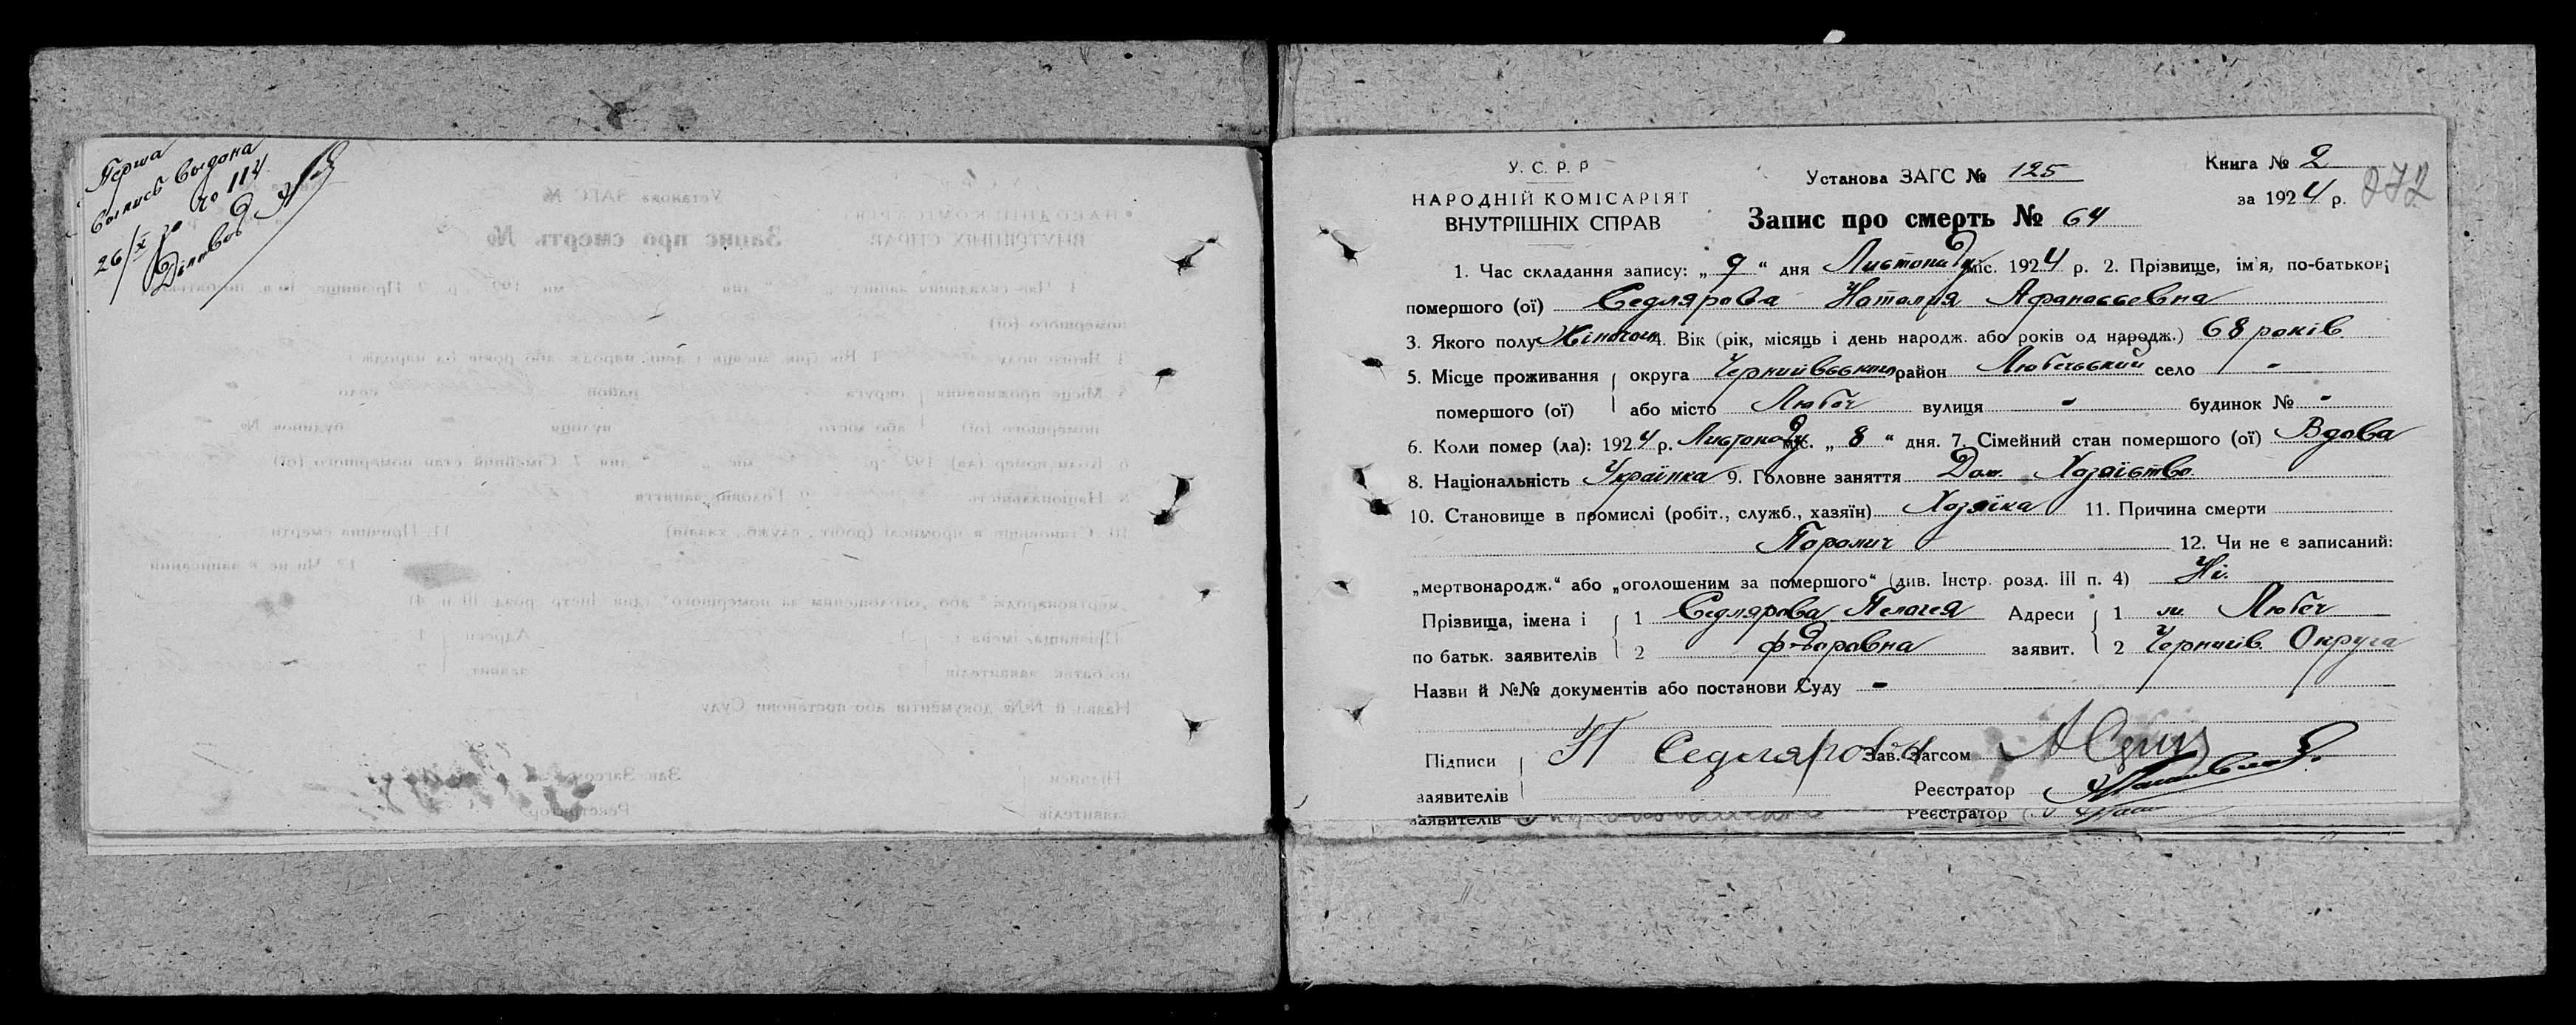 Перша
выпись выдана
26/X 30 по 114
Діловод
У. С. Р. Р
НАРОДНІЙ КОМІСАРІЯТ
ВНУТРІШНІХ СПРАВ
Установа ЗАГС № 125
Запис про смерть № 64
Книга № 2
за 1924 р. 272
1. Час складання запису: „ 9 “ дня Листопаду міс. 1924 р. 2. Прізвище, ім'я, по-батькові
помершого (ої) Седлярова Наталия Афанассевна
3. Якого полу Жіночого 4. Вік (рік, місяць і день народж. або років од народж.) 68 років
5. Місце проживання округа Черниівська район Любечський село "
помершого (ої) або місто Любеч вулиця " будинок № "
6. Коли помер (ла): 1924 р. Листопаду міс. „ 8 “ дня. 7. Сімейний стан помершого (ої) Вдова
8. Національність Українка 9. Головне заняття Дом. Хозяїство.
10. Становище в промислі (робіт., служб., хазяїн) Хозяїка 11. Причина смерти
Поролич 12. Чи не є записаний:
„мертвонародж.“ або „оголошеним за помершого“ (див. Інстр. розд. III п. 4) Ні.
Прізвища, імена і 1 Седлярова Пелагея Адреси 1 м. Любеч
по батьк. заявителів 2 Федоровна заявит. 2 Черниів. Округа
Назви й №№ документів або постанови Суду -
Підписи П Седлярова Зав. Загсом
заявителів Реєстратор
заявителів Реєстратор